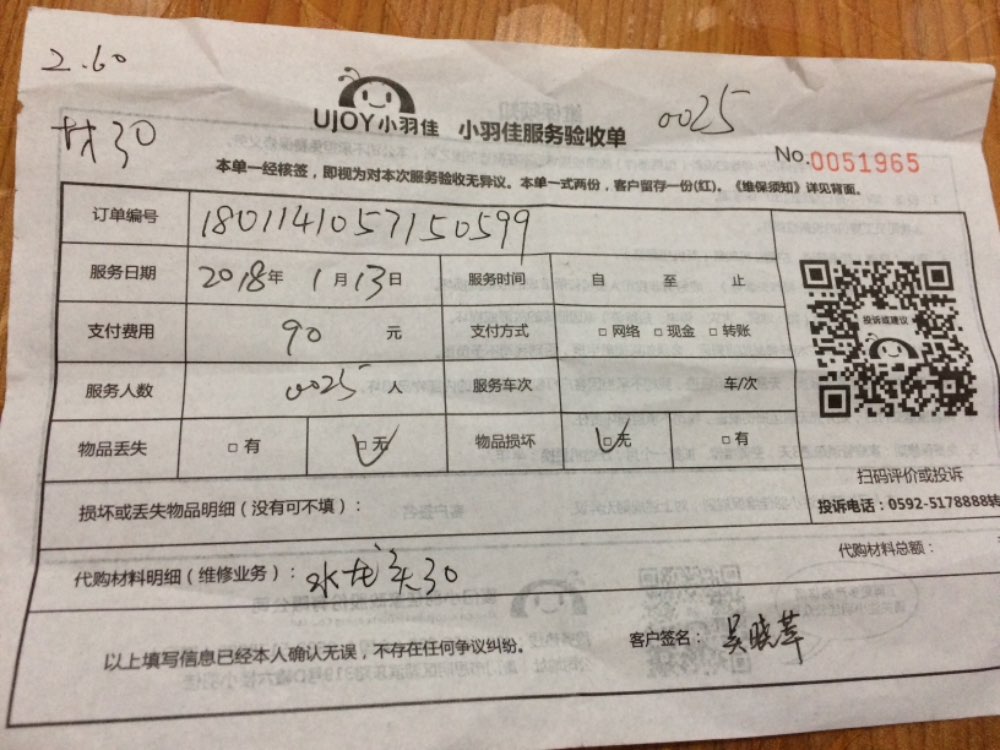 2.60
材30
UJOY小羽佳 小羽佳服务验收单
0025
No.0051965
本单一经核签，即视为对本次服务验收无异议。本单一式两份，客户留存一份(红)。《维保须知》详见背面。
订单编号 1801141057150599
服务日期 2018年 1月13日 服务时间 自 至 止
支付费用 90 元 支付方式 □网络 □现金 □转账
服务人数 0025 人 服务车次 车/次
物品丢失 □有 □无 物品损坏 □无 □有
投诉或建议
扫码评价或投诉
投诉电话：0592-5178888转
损坏或丢失物品明细（没有可不填）：
代购材料明细（维修业务）：水龙头30
代购材料总额：
以上填写信息已经本人确认无误，不存在任何争议纠纷。
客户签名：吴晓苹